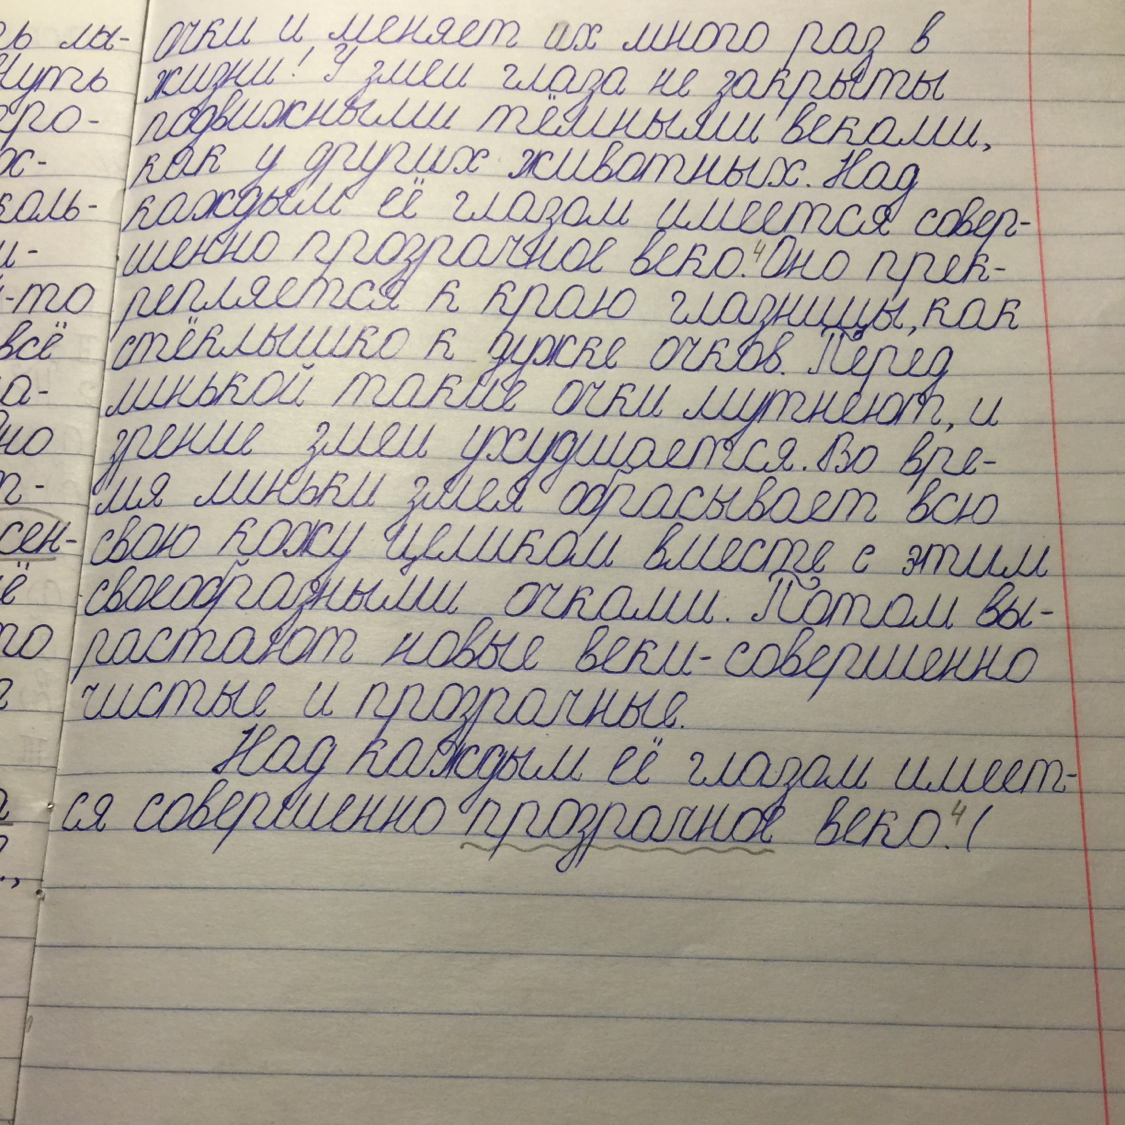 очки и меняет их много раз в
жизни! У змеи глаза не закрыты
подвижными тёмными веками,
как у других животных. Над
каждым её глазом имеется совер-
шенно прозрачное веко.⁴ Оно прек-
репляется к краю глазницы, как
стёклышко к дужке очков. Перед
линькой такие очки мутнеют, и
зрение змеи ухудшается. Во вре-
мя линьки змея сбрасывает всю
свою кожу целиком вместе с этим
своеобразными очками. Потом вы-
растают новые веки - совершенно
чистые и прозрачные.
Над каждым её глазом имеет-
ся совершенно прозрачное веко.⁴ (